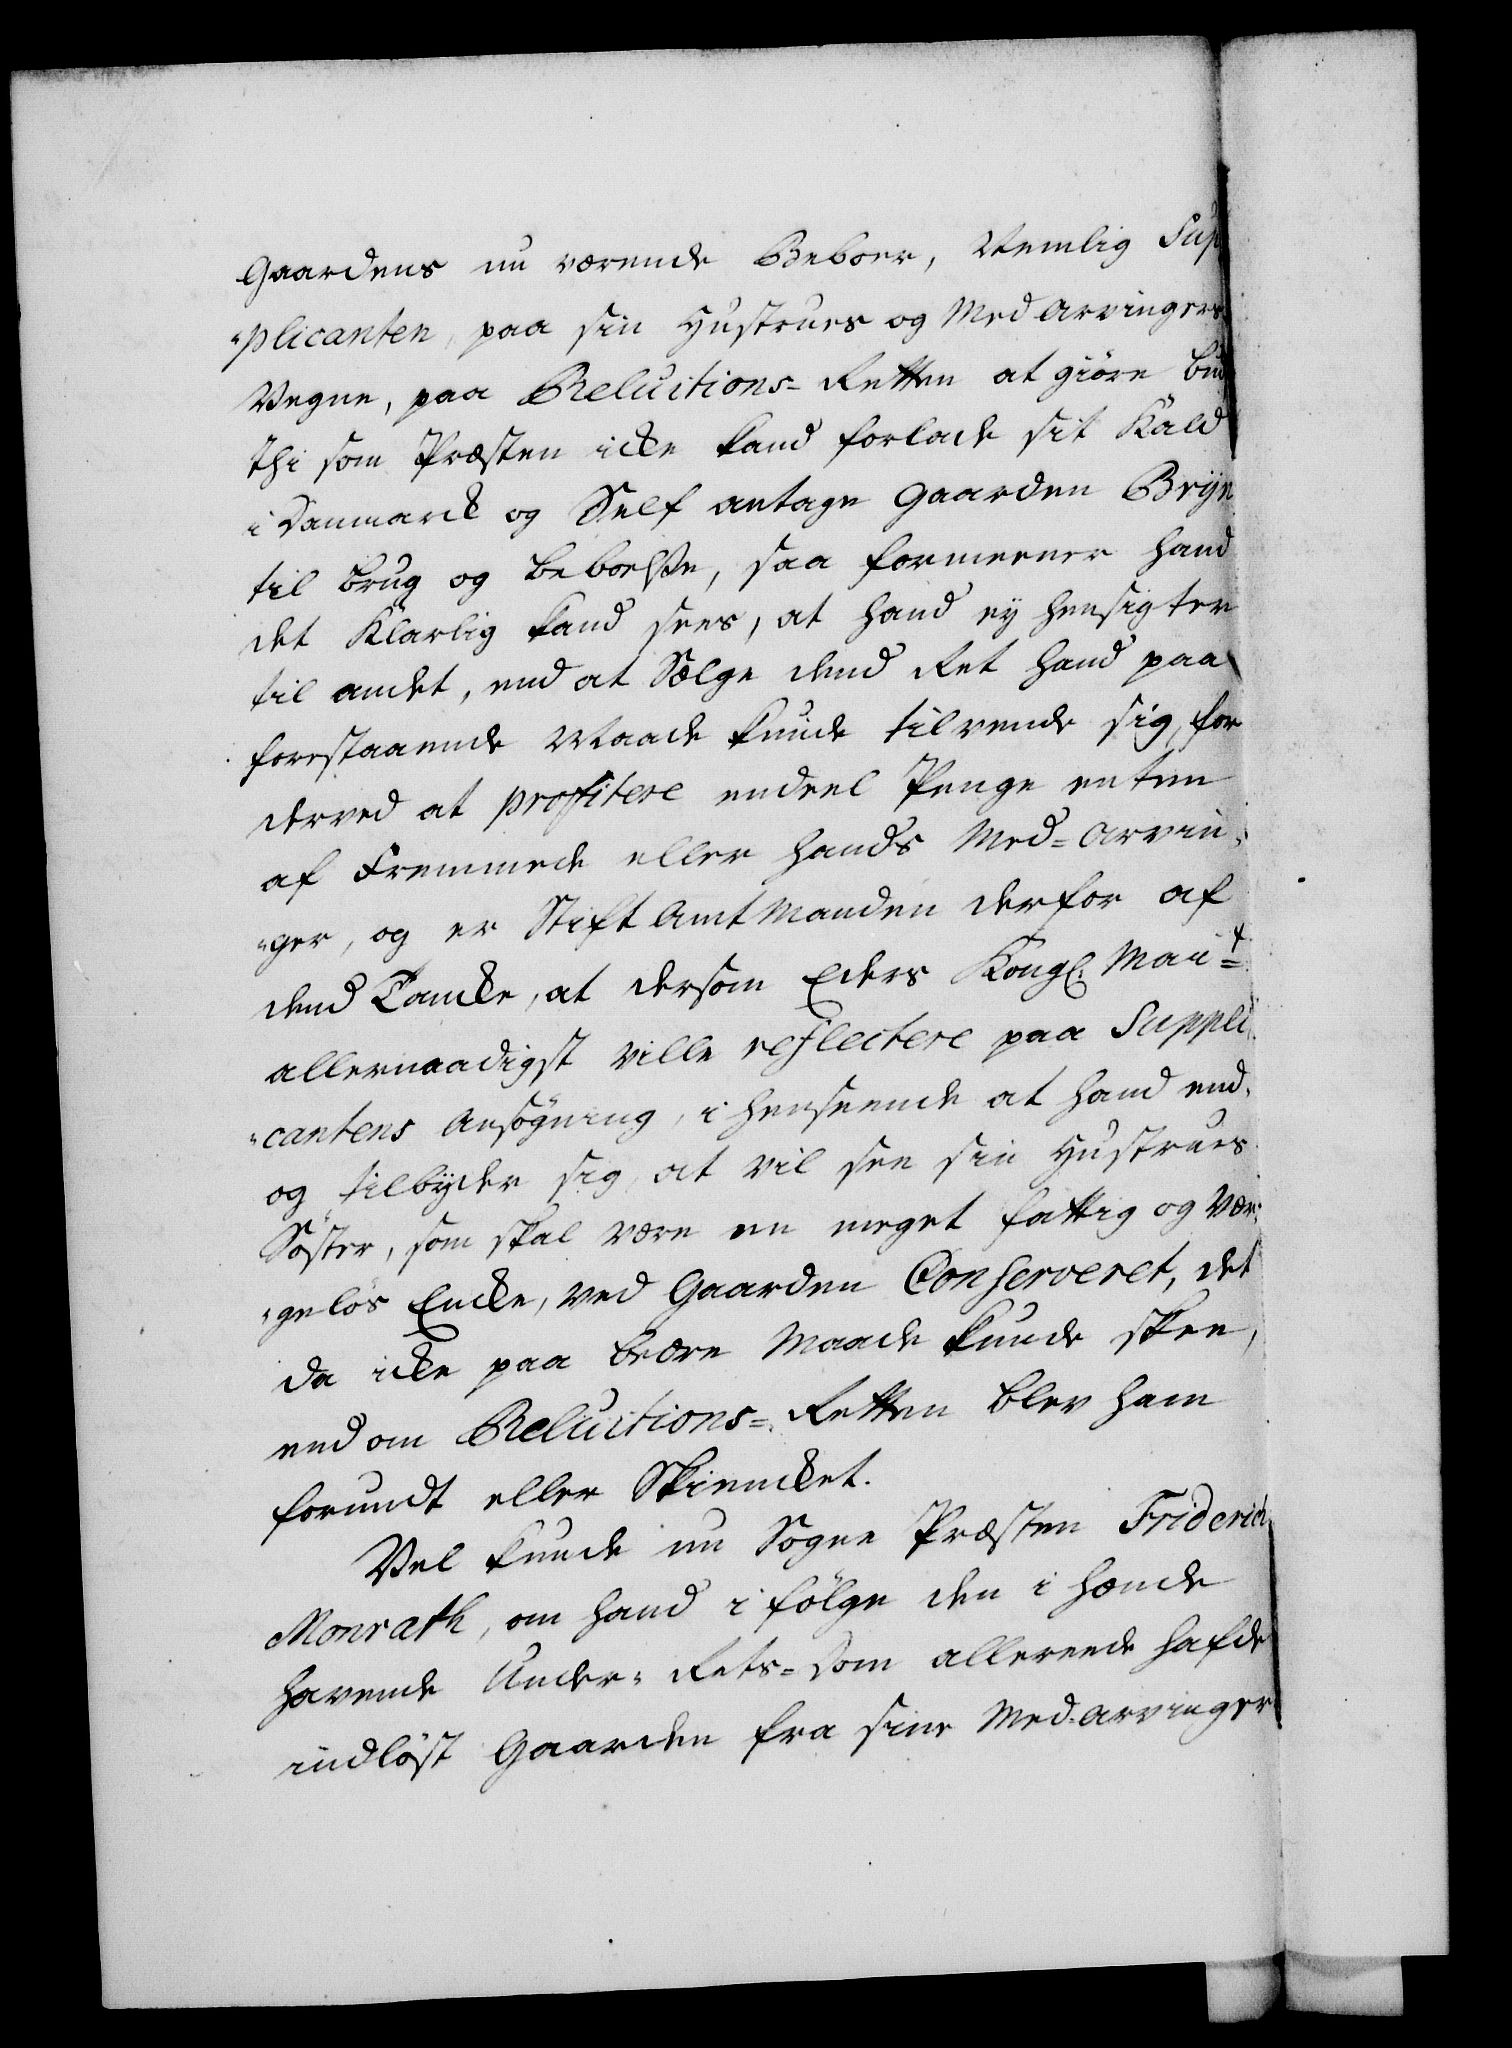 Gaardens nu værende Beboer, Nemlig Sup
"plicanten, paa sin Hustrues og Med Arvingers
Vegne, paa Reluitions-Retten at giöre bud
thi som Præsten icke kand forlade sit Kald
i Danmarck og Self antage Gaarden Bryn
til brug og beboelse, saa formeener hand
det Klarlig kand sees, at hand ey hensigter
til andet, end at Sælge dend Ret hand paa
forestaaende Maade kunde tilvende sig, for
derved at profitere endeel Penge enten
af Fremmede eller hands Med-Arvin-
"ger, og er Stift Amt Manden derfor af
dend Tancke, at dersom Eders Kongl. Mai=t
allernaadigst ville reflectere paa Suppli
"cantens Ansögning, i henseende at hand end-
og tilbyder sig, at vil see sin Hustrues
Söster, som skal være en meget fattig og Vær-
"gelös Encke, ved Gaarden Conserveret, det
da icke paa bedre Maade kunde skee,
end om Reluitions-Retten blev ham
forundt eller Skiencket.
Vel kunde nu Sogne Præsten Friderich
Monrath, om hand i fölge den i hænde
havende Under-Rets-Dom allereede hafde
indlöst Gaarden fra sine Med-Arvinger